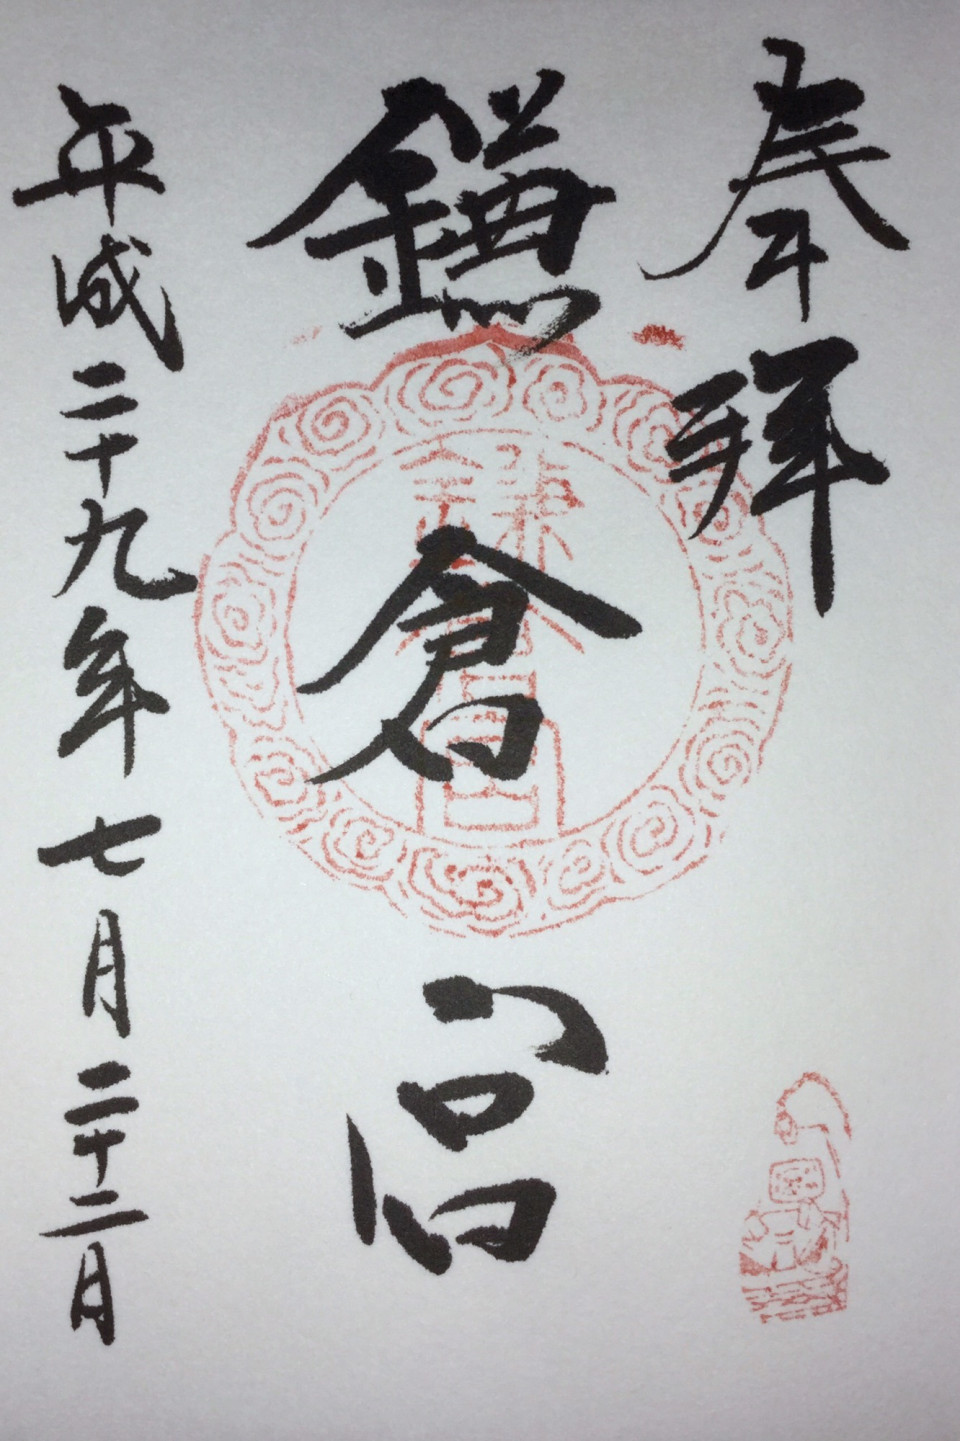 奉拝
鎌倉宮
平成二十九年七月二十二日
鎌倉宮